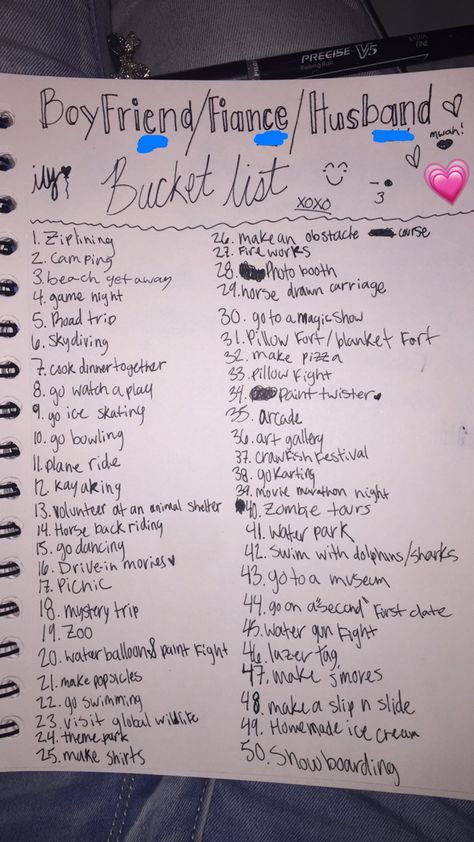 PRECISE V5
BoyFriend/Fiance/Husband
mwah!
ily
Bucket list
xoxo
1. Ziplining
2. Camping
3. beach get away
4. game night
5. Road trip
6. Skydiving
7. cook dinner together
8. go watch a play
9. go ice skating
10. go bowling
11. plane ride
12. Kayaking
13. volunteer at an animal shelter
14. Horse back riding
15. go dancing
16. Drive-in movies
17. Picnic
18. mystery trip
19. Zoo
20. water balloon & paint Fight
21. make popsicles
22. go swimming
23. visit global wildlife
24. theme park
25. make shirts
26. make an obstacle course
27. Fire works
28. Photo booth
29. horse drawn carriage
30. go to a magic show
31. Pillow Fort/blanket Fort
32. make pizza
33. pillow Fight
34. Paint twister
35. arcade
36. art gallery
37. crawfish Festival
38. go karting
39. movie marathon night
40. Zombie tours
41. Water park
42. Swim with dolphins/sharks
43. go to a museum
44. go on a "second" First date
45. water gun Fight
46. lazer tag
47. make s'mores
48. make a slip n slide
49. Homemade ice cream
50. Snowboarding